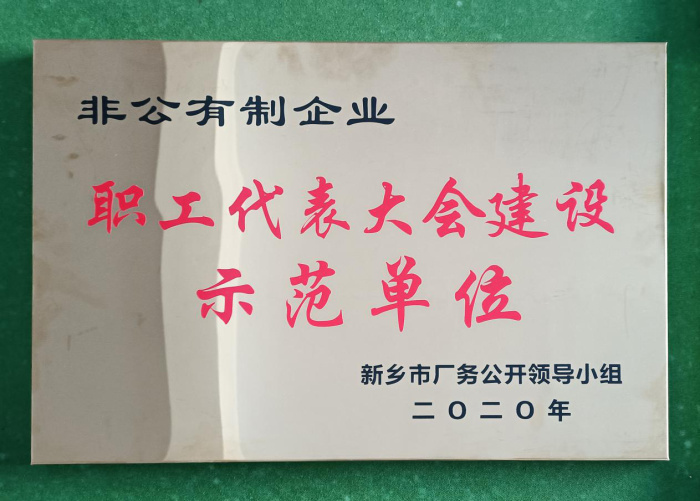 非公有制企业
职工代表大会建设
示范单位
新乡市厂务公开领导小组
二〇二〇年